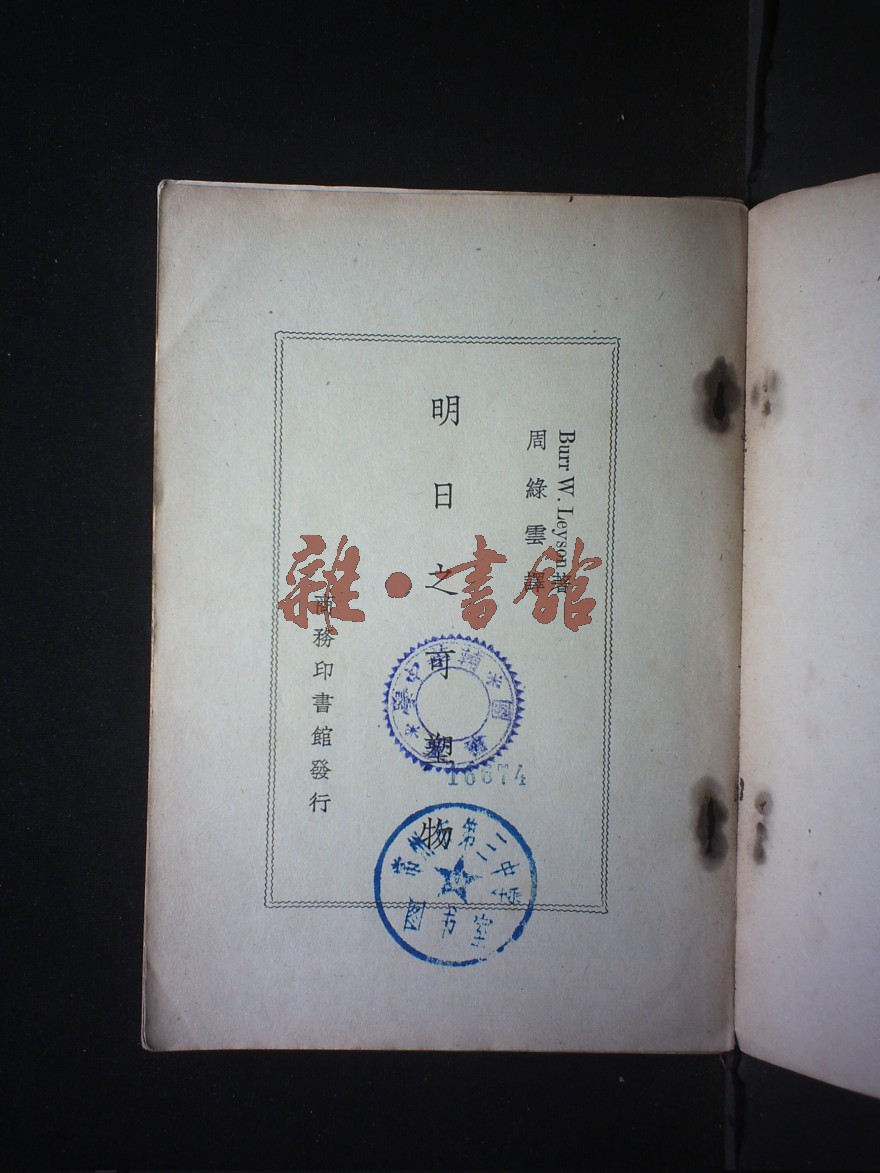 Burr W. Leyson 著
周綠雲譯
明日之可塑物
商務印書館發行
雜·書館
16674
第三中学
图书室